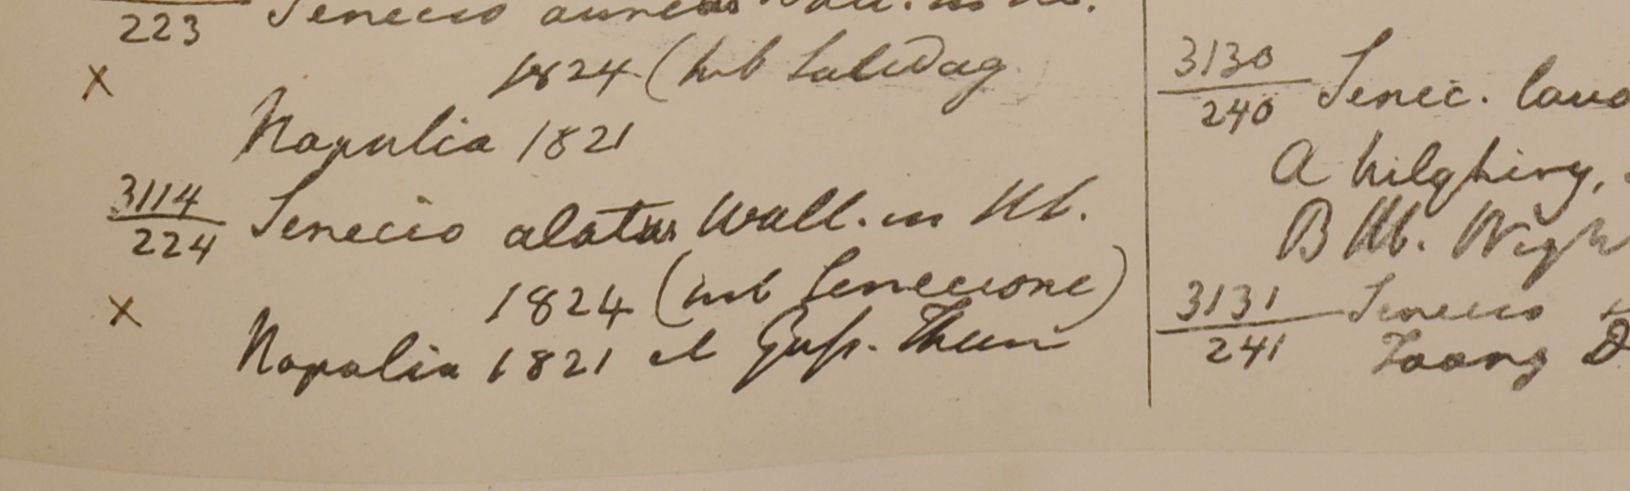 223 Senecio aureus Wall. in Hb.
x 1824 (sub
Napalia 1821
3114
224 Senecio alatus Wall. in Hb.
1824 (sub Senecione)
x Napalia 1821 et
3130
240 Senec.
A Nilghiry,
B Hb. Wigh
3131
241 Senecio
Toong D